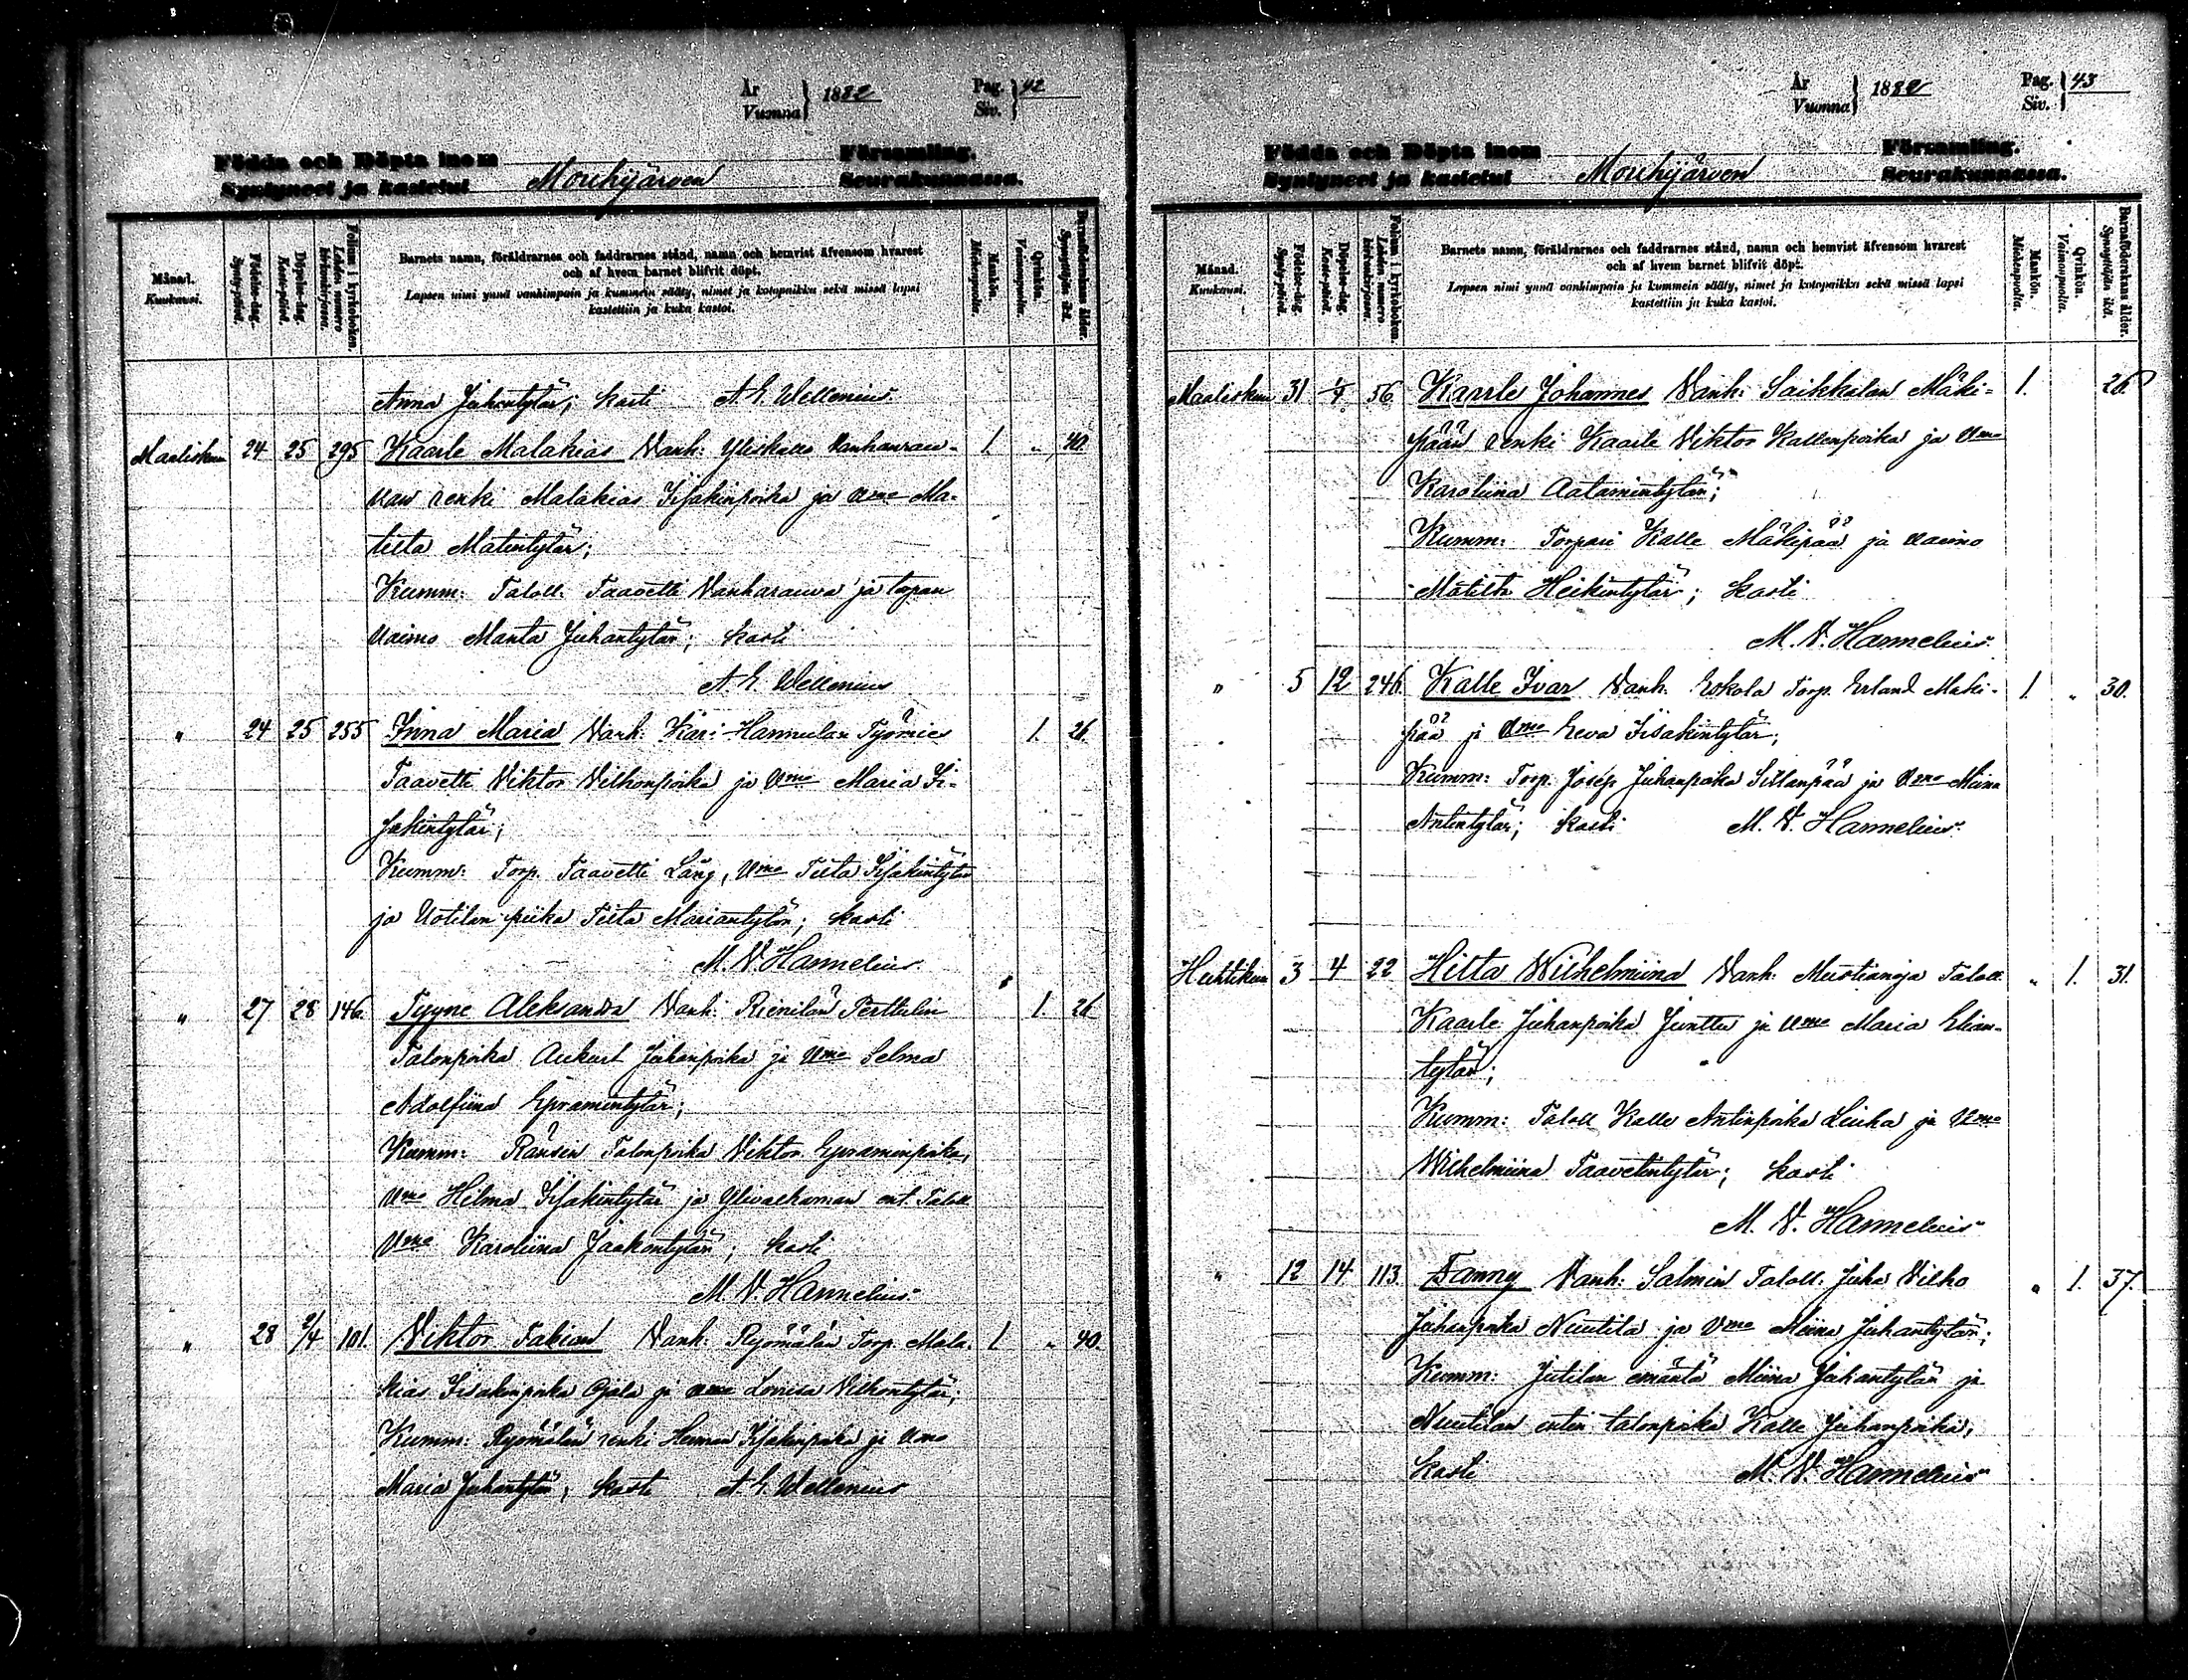 År
Vuonna } 1882
Pag.
Siv. } 42
Födda och Döpta inom
Syntyneet ja kastetut
Mouhijärven
Församling.
Seurakunnassa.
Månad.
Kuukausi.
Födelse-dag.
Synty-päivä.
Döpelse-dag.
Kaste-päivä.
Folium i kyrkoboken.
Lehden numero kirkonkirjassa.
Barnets namn, föräldrarnes och faddrarnes stånd, namn och hemvist äfvensom hvarest
och af hvem barnet blifvit döpt.
Lapsen nimi ynnä vanhimpain ja kummein sääty, nimet ja kotopaikka sekä missä lapsi
kastettiin ja kuka kastoi.
Mankön.
Miehenpuolta.
Qvinkön.
Vaimonpuolta.
Barnaföderskans ålder.
Synnyttäjän ikä.
Anna Juhantytär; kasti A. E. Wellenius
Maaliskuu 24 25 295 Kaarle Malakias Vanh: Yliskallo Vanhanrau- 1. „ 40.
van renki Malakias Iisakinpoika ja Vmo Ma-
teeta Matintytär;
Kumm: Taloll. Taavetti Vanharauva ja torpan
vaimo Manta Juhantytär; kasti
A. E. Wellenius
„ 24 25 255 Inna Maria Vanh: Kari-Hannulan Työmies 1. 26.
Taavetti Viktor Vilhonpoika ja Vmo Maria Ii-
sakintytär;
Kumm: Torp. Taavetti Lång, Vmo Tiita Iisakintytär
ja Uotilan piika Tiita Mariantytär; kasti
M. V. Hannelius.
„ 27 28 146. Tyyne Aleksandra Vanh: Rienilän Perttulin 1. 26
Talonpoika Aukust Juhanpoika ja Vmo Selma
Adolfiina Epramintytär;
Kumm: Ränsin Talonpoika Viktor Epraminpoika,
Vmo Hilma Iisakintytär ja ent. Taloll.
Vmo Karoliina Jaakontytär; kasti
M. V. Hannelius.
„ 28 2/4 101. Viktor Fabian Vanh: Ryömälän Torp. Mala- 1 „ 40.
kias Iisakinpoika Ojala ja Vmo Lovisa Vilhontytär;
Kumm: Ryömälän renki Herman Iisakinpoika ja Vmo
Maria Juhantytär; kasti A. E. Wellenius
År
Vuonna } 1882
Pag.
Siv. } 43
Födda och Döpta inom
Syntyneet ja kastetut
Mouhijärven
Församling.
Seurakunnassa.
Månad.
Kuukausi.
Födelse-dag.
Synty-päivä.
Döpelse-dag.
Kaste-päivä.
Folium i kyrkoboken.
Lehden numero kirkonkirjassa.
Barnets namn, föräldrarnes och faddrarnes stånd, namn och hemvist äfvensom hvarest
och af hvem barnet blifvit döpt.
Lapsen nimi ynnä vanhimpain ja kummein sääty, nimet ja kotopaikka sekä missä lapsi
kastettiin ja kuka kastoi.
Mankön.
Miehenpuolta.
Qvinkön.
Vaimonpuolta.
Barnaföderskans ålder.
Synnyttäjän ikä.
Maaliskuu 31 56. Kaarle Johannes Vanh: Saikkalan Mäki- 1. 26.
pään renki Kaarle Viktor Kallenpoika ja Vmo
Karoliina Aatamintytär;
Kumm: Torpari Kalle Mäkipää ja vaimo
Matilta Heikintytär; kasti
M. V. Hannelius.
„ 5 12 246. Kalle Ivar Vanh. Eskola Torp. Erland Mäki- 1. „ 30.
pää ja Vmo Eeva Iisakintytär;
Kumm: Torp. Josep Juhanpoika Sillanpää ja Vmo Miina
Antintytär; kasti M. V. Hannelius.
Huhtikuu 3 4 22 Hilta Wilhelmiina Vanh: Mustianoja Taloll. „ 1. 31.
Kaarle Juhanpoika Junttu ja Vmo Maria Elian-
tytär;
Kumm: Taloll Kalle Antinpoika Liuha ja Vmo
Wilhelmiina Taavetintytär; kasti
M. V. Hannelius
„ 12 14 113. Fanny Vanh: Salmin Taloll. Juha Vilho „ 1. 37.
Juhanpoika Nuutila ja Vmo Miina Juhantytär;
Kumm: Jutilan emäntä Miina Juhantytär ja
Nuutilan entin talonpoika Kalle Juhanpoika;
kasti M. V. Hannelius